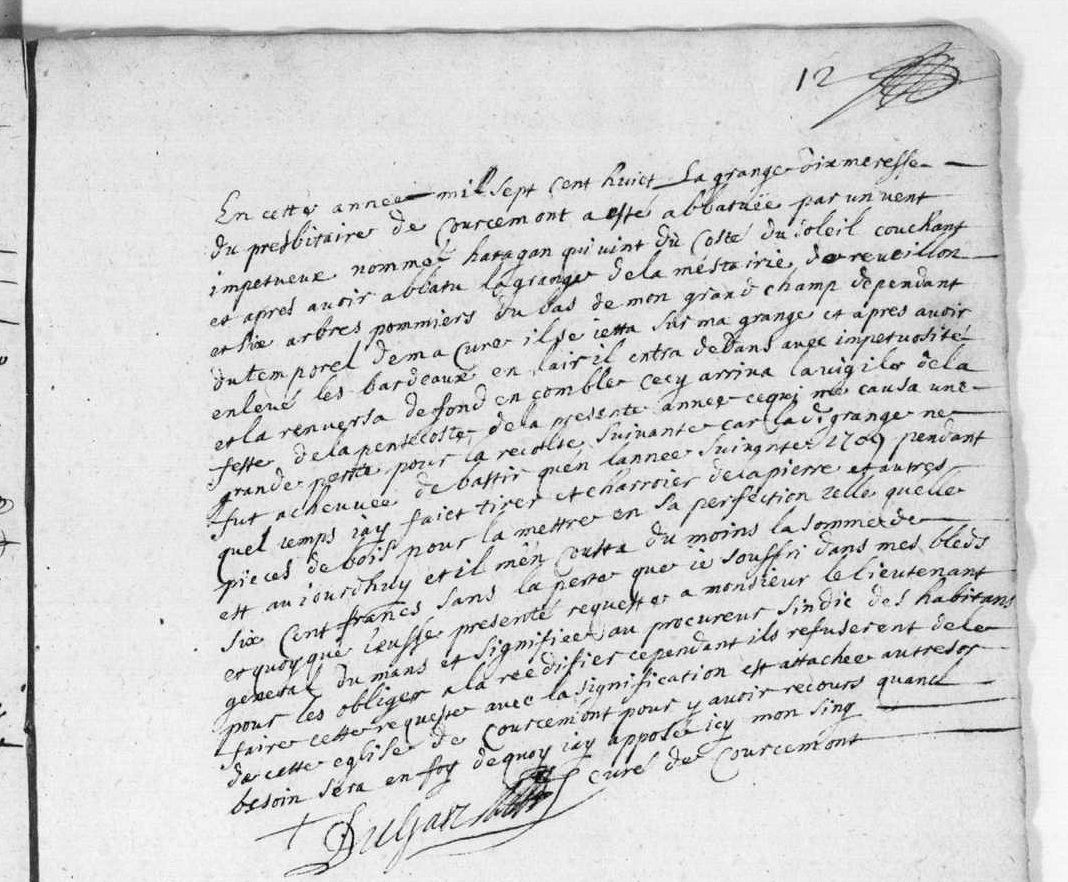 12
En cette année mil sept cent huict La grange dixmeresse
du presbitaire de Courcemont a esté abbatuée par un vent
impetueux nommé haragan qui vint du costé du soleil couchant
et apres avoir abbatu la grange de la méstairie de reveillon
et six arbres pommiers du bas de mon grand champ dependant
du temporel de ma cure il se ietta sur ma grange et apres avoir
enlevé les bardeaux en lair il entra dedans avec impetuosité
et la renversa de fond en comble cecy arriva la vigile de la
feste de la pentecoste de la presente année ce qui me causa une
grande perte pour la recolte suivante car lad grange ne
fut acheuvée de bastir quén lannée suivante 1709 pendant
quel temps iay faict tirer et charroier de la pierre et autres
pieces de bois pour la mettre en sa perfection telle quelle
est auiourdhuy et il mén cousta du moins la somme de
six cent francs sans la perte que ie souffri dans mes bleds
et quoy que ieusse presenté requeste a monsieur le lieutenant
general du mans et signifiee au procureur sindic des habitans
pour les obliger a la reedifier cependant ils refuserent de le
faire cette requeste avec la signification est attachee au tresor
de cette eglise de Courcemont pour y avoir recours quand
besoin sera en foy de quoy iay apposé icy mon sing
curé de Courcemont